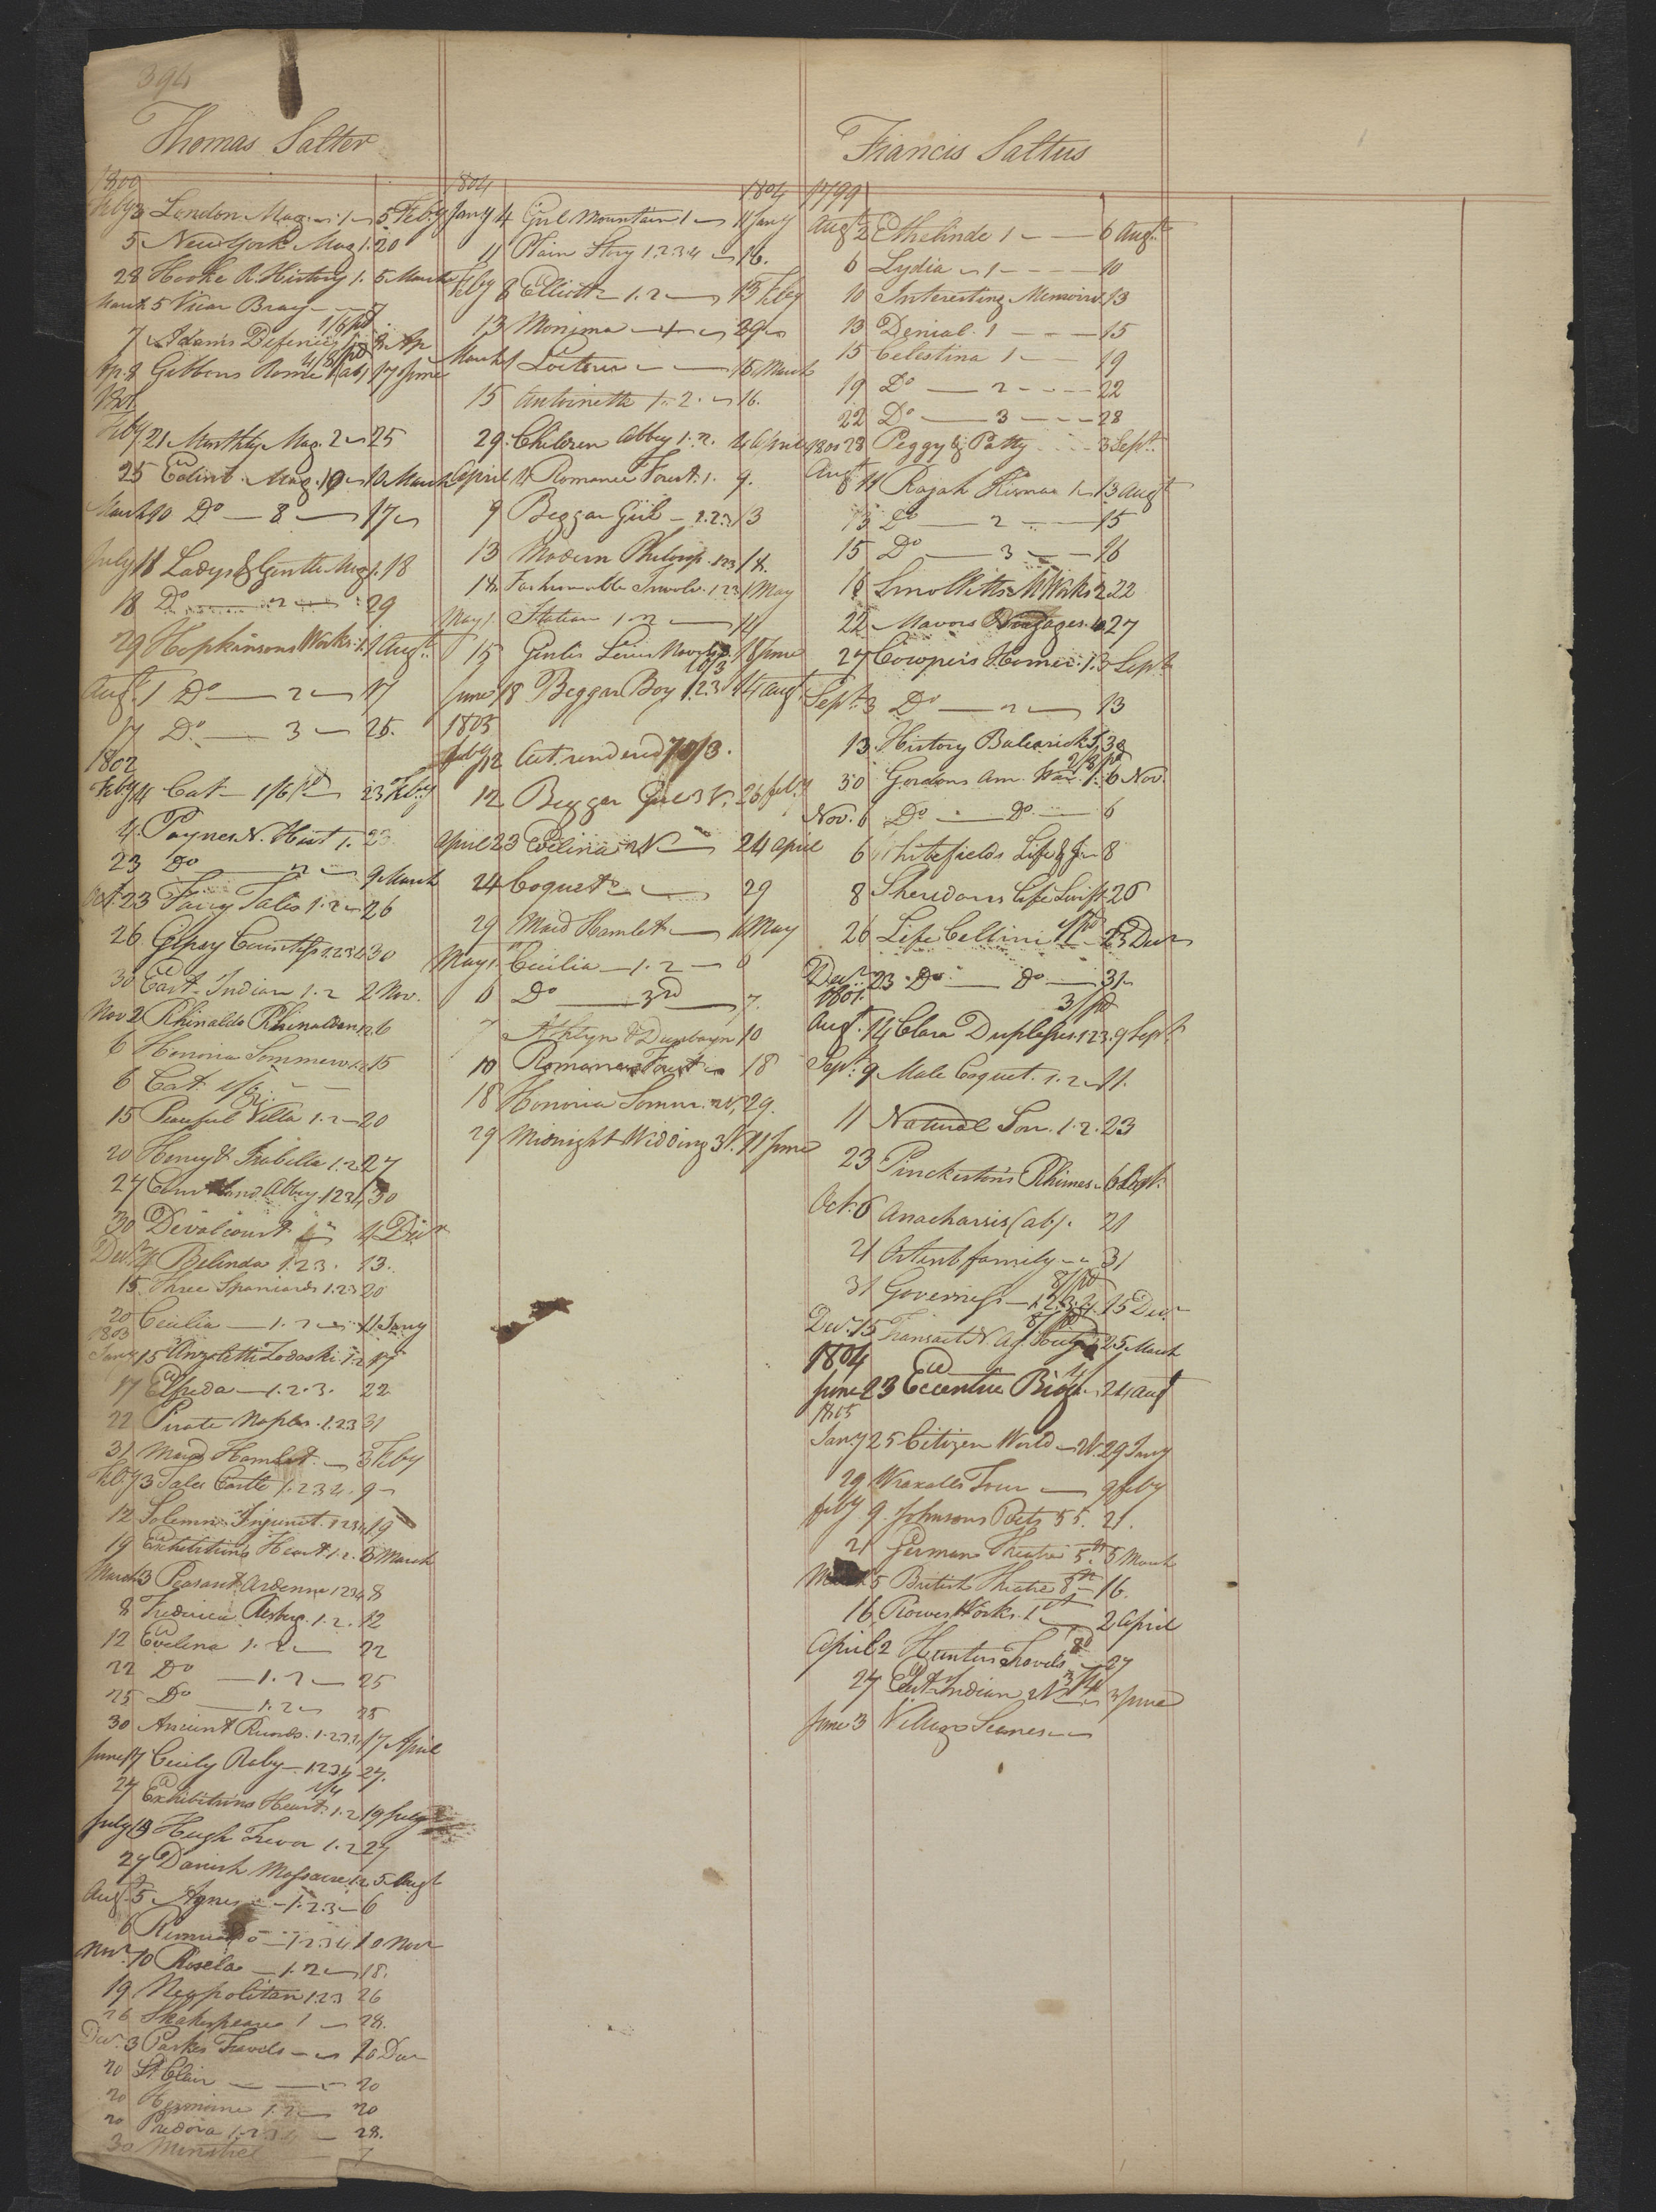 394
Thomas Salter
1800
Feby 3 London Mag. 1 5 Feby
5 New York Mag 1. 20
28 Hooke R. History 1. 5 March
March 5 Vicar Bray 7
1/6 pd
7 Adams Defence 8 Ap
4/8 pd
Ap. 8 Gibbons Rome 1 (ab) 17 June
1801
Feby 21 Monthly Mag. 2 25
25 Edinb. Mag. 10 March
March 10 Do 8 17
July 11 Ladys & Gentle. Mag 1. 18
18 Do 2 29
29 Hopkinsons Works 1. 1 Augt.
Augt. 1 Do 2 17
17 Do 3 25.
1802
Feby 4 Cat 1/6 pd 23 Feby
4 Paynes N. Hist 1. 23
23 Do 2 9 March
Oct. 23 Fairy Tales 1.2 26
26 Gipsy Countess 1.2.3.4 30
30 East Indian 1.2 2 Nov.
Nov 2 Rhinaldo Rhinaldini 1.2 6
6 Honoria Sommerv. 1.2 15
6 Cat. 1/6
15 Peaceful Villa 1.2 20
20 Henry & Isabella 1.2 27
27 Abbey 1234 30
30 Devalcourt 4 Decr
Decr 4 Belinda 1.2.3. 13.
15 Three Spaniards 1.2.3 20
20 Cecilia 1.2 11 Jany
1803
Jany 15 Anzoletti Zodoski 1.2 17
17 Elfreda 1.2.3. 22
22 Pirate Naples 1.2.3 31
31 Maid Hamlet 3 Feby
Feby 3 Tales Castle 1.2.3.4. 9
12 Solemn Injunct. 1234 19
19 Exhibitions Heart 1.2. 3 March
March 3 Peasant Ardenne 1234 8
8 Frederica Risberg. 1.2. 12
12 Evelina 1.2 22
22 Do 1.2 25
25 Do 1.2 25
30 Ancient Records 1.2.3.4 17 April
June 17 Cecily Raby 1234 27.
1/4
27 Exhibitions Heart 1.2 19 July
July 19 Hugh Trevor 1.2 27
27 Danish Massacre 1.2 5 Augt
Augt. 5 Agnes 1.2.3 6
6 1234 10 Novr
Novr. 10 Rosela 1.2 18.
19 Neapolitan 1.2.3 26
26 Shakespeare 1 28.
Decr. 3 Parkes Travels 20 Decr
20 St Clair 20
20 Hermione 1.2 20
20 28.
30 Minstrel 7
1804 1804
Jany 4 Girl Mountain 1 11 Jany
11 Plain Story 1.2.3.4 16.
Feby 8 Elliott 1.2 13 Feby
13 Monima 29
March 1 15 March
15 Antoinette 1.2. 16.
29. Children Abbey 1.2. 4 April
April 4 Romance Forest. 1. 9.
9 Beggar Girl 1.2.3 13
13 Modern Philosop. 123 18.
18. Fashionable Involv. 123 1 May
May 1. Statira 1.2 14
15 18 June
10/3
June 18 Beggar Boy 1.2.3 14 Augt
1805
Feby 12 Act. rendered 10/3.
12 Beggar Girl 3 V. 26 Feby
April 23 Evelina 2 V 24 April
24 Coquette 29
29 Maid Hamlet 1 May
May 1. Cecilia 1.2 6
6 Do 3rd 7.
7 Athlyn & Dunbayn 10
10 Romance Forest 18
18 Honoria Somm. 2V, 29.
29 Midnight Wedding 3V. 11 June
Francis Saltus
1799
Augt 2 Ethelinde 1 6 Augt.
6 Lydia 1 10
10 Interesting Memoirs 13
13 Denial. 1 15
15 Celestina 1 19
19 Do 2 22
22 Do 3 28
1800 28 Peggy & Patty 3 Sept.
Augt 11 Rajah Kisna 1 13 Augt
13 Do 2 15
15 Do 3 16
16 Smolletts M Works 2 22
22 Mavors Voyages. 27
27 Cowpers Homer 1. 3 Sept
Sept. 3 Do 2 13
13. History Balearick I, 30
2/8 pd
30 Gordons Am. War. 1. 6 Nov.
Nov. 6 Do Do 6
6 Whitefields Life & J. 8
8 Sheridans Life Swift 26
26 Life Cellini 23 Decr
Decr. 23 Do Do 31
1801. 3/ pd
Augt. 14 Clara Duplessis 1.2.3. 9 Sept.
Sept. 9 Male Coquet. 1.2 11.
11 Natural Son. 1.2. 23
23 Pinckertons Rhimes 6 Oct.
Oct. 6 Anacharsis (ab). 21
21 Ortenb family 31
8/ pd
31 Governess 1.2.3.4. 15 Decr.
Decr. 15 Transact. N. Ag. Socy 25 March
1804
June 23 Eccentric Biogr. 24 Augt
1805
Jany 25 Citizen World 2V. 29 Jany
29 Wraxalls Tour 9 Feby
Feby 9. Johnsons Poets 55. 21.
21 German Theatre 5th. 5 March
March 5 British Theatre 8th 16.
16 Rowes Works. 1st 2 April
April 2 Hunters Travels 27
27 East Indian 2V 3 June
June 3 Village Scenes